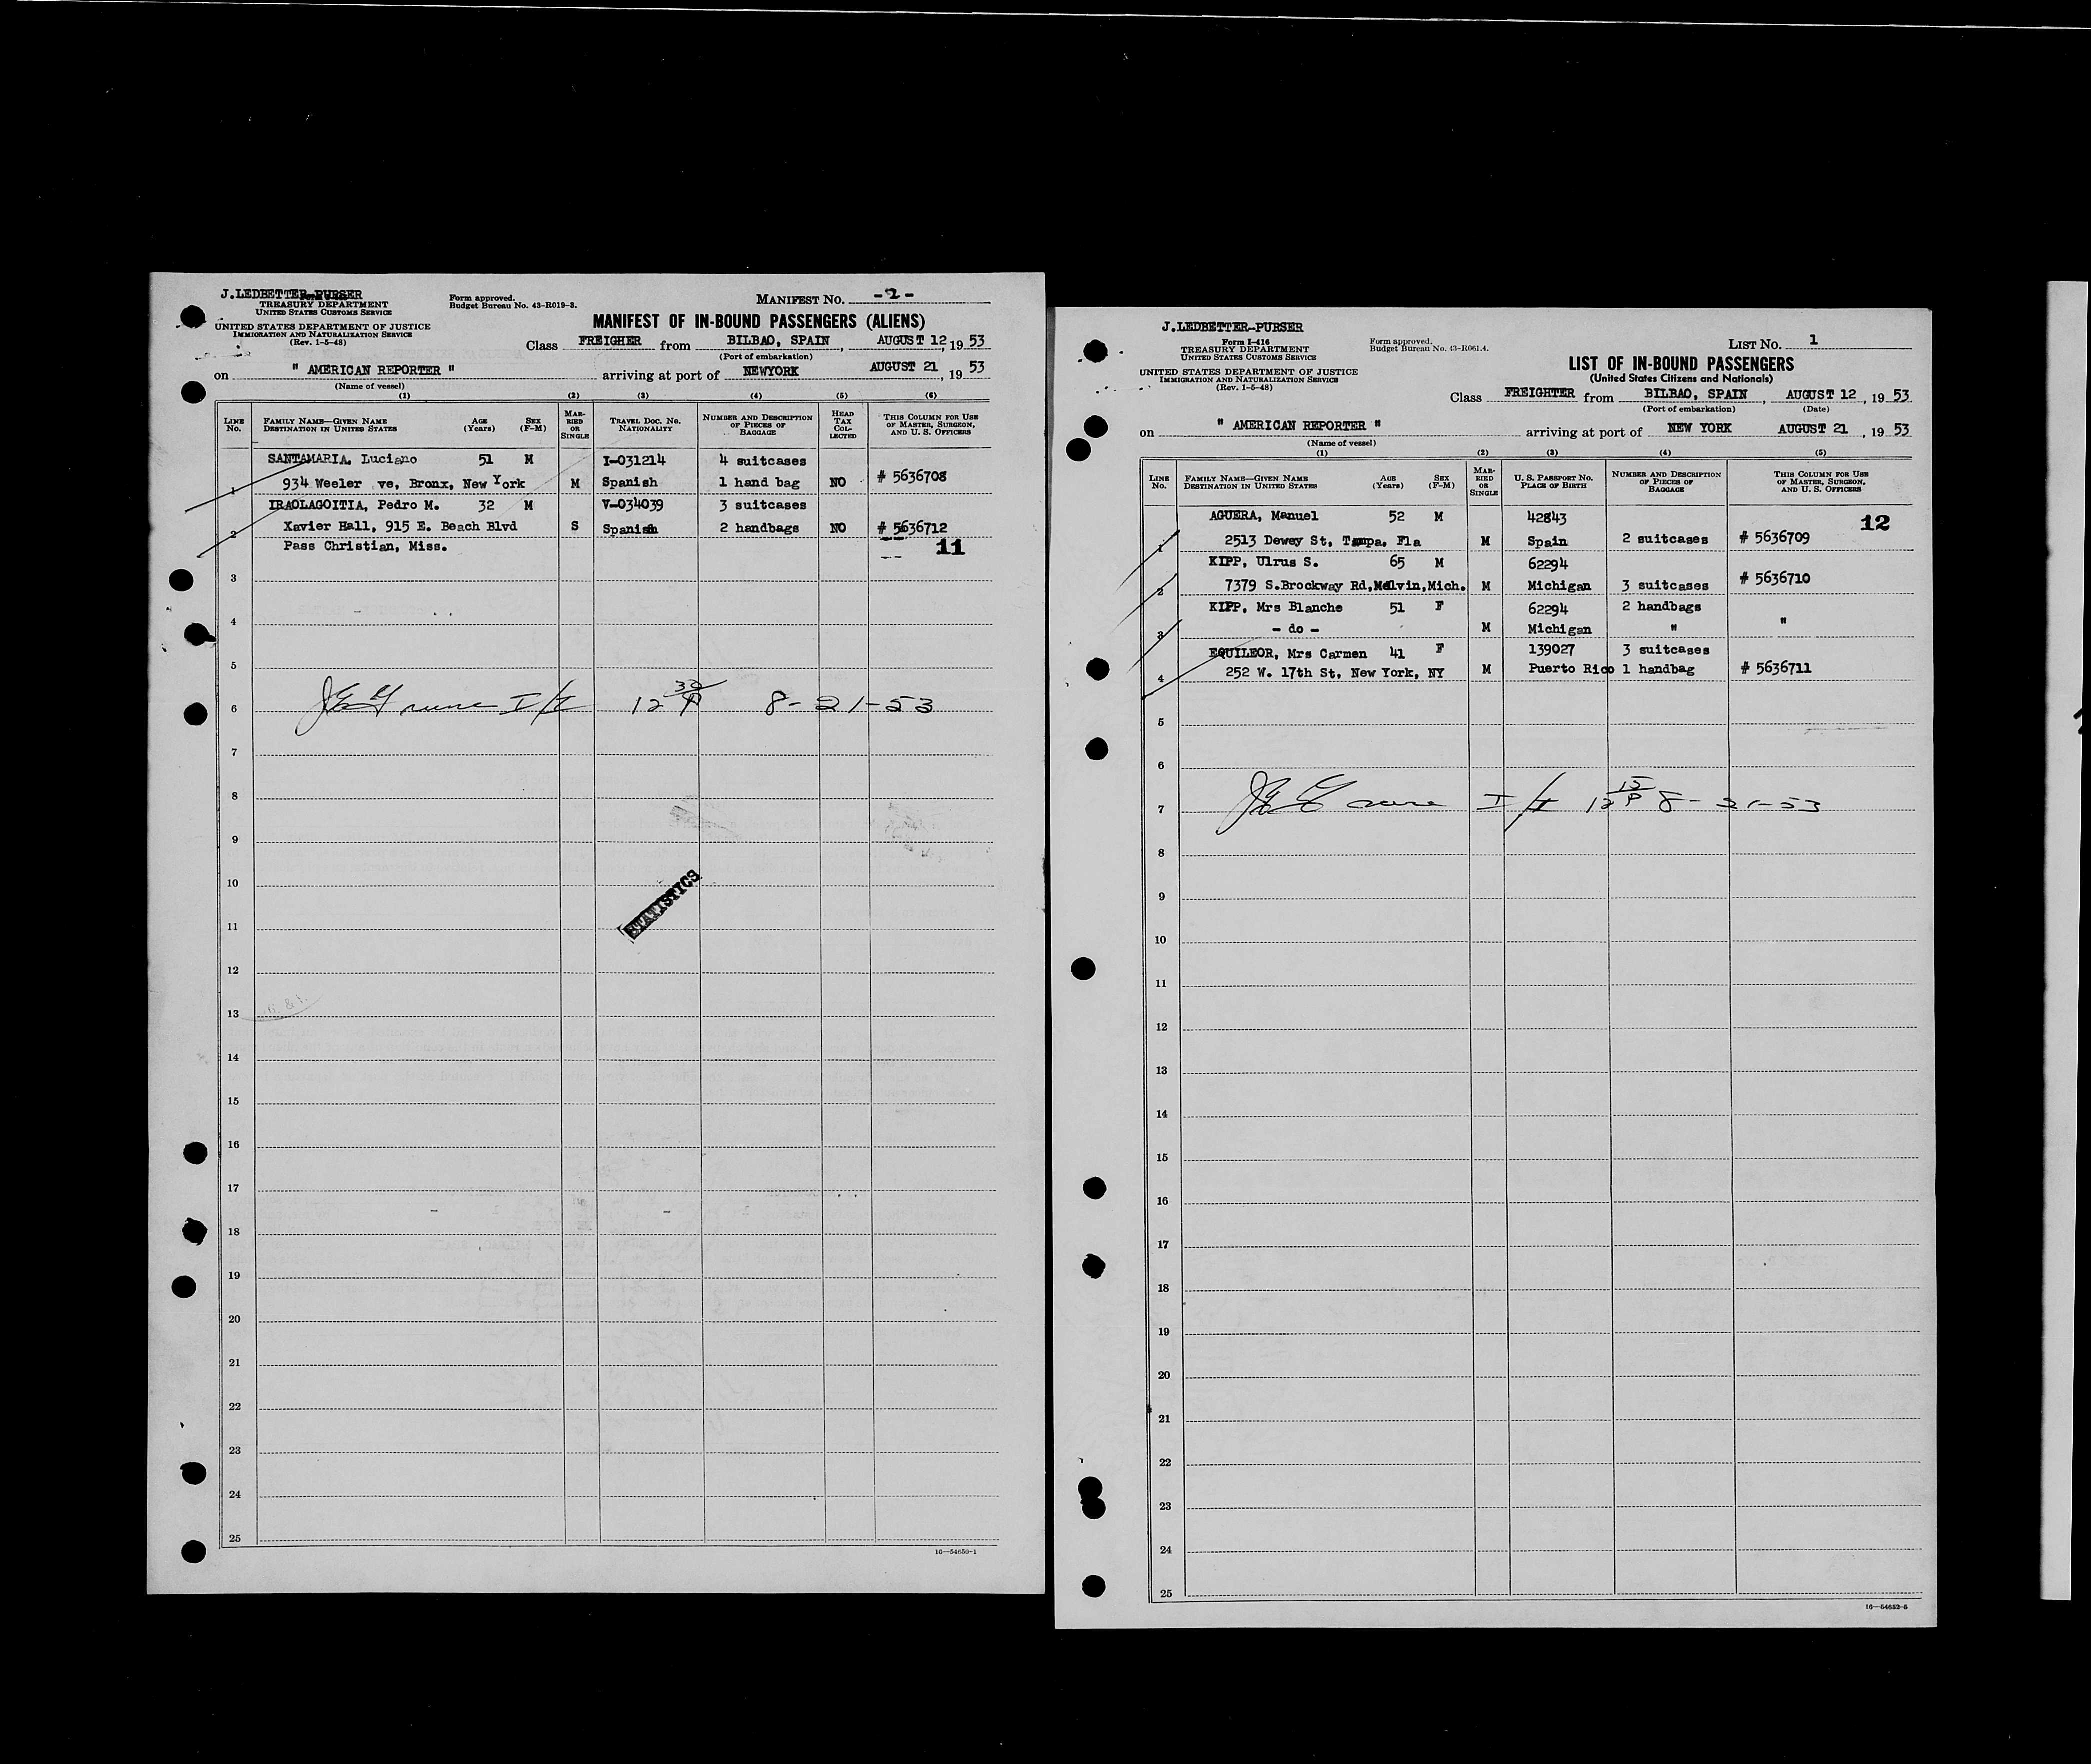 J.LEDBETTER-PURSER
TREASURY DEPARTMENT
UNITED STATES CUSTOMS SERVICE
UNITED STATES DEPARTMENT OF JUSTICE
IMMIGRATION AND NATURALIZATION SERVICE
(Rev. 1-5-48)
Form approved.
Budget Bureau No. 43-R019-3.
MANIFEST No. -2-
MANIFEST OF IN-BOUND PASSENGERS (ALIENS)
Class FREIGHER from BILBAO, SPAIN, AUGUST 12, 19 53
(Port of embarkation)
on " AMERICAN REPORTER " arriving at port of NEWYORK AUGUST 21, 19 53
(Name of vessel)
(1) (2) (3) (4) (5) (6)
LINE No. FAMILY NAME—GIVEN NAME DESTINATION IN UNITED STATES AGE (Years) SEX (F-M) MARRIED OR SINGLE TRAVEL DOC. NO. NATIONALITY NUMBER AND DESCRIPTION OF PIECES OF BAGGAGE HEAD TAX COLLECTED THIS COLUMN FOR USE OF MASTER, SURGEON, AND U. S. OFFICERS
SANTAMARIA, Luciano 51 M I-031214 4 suitcases
1 934 Weeler ve, Bronx, New York M Spanish 1 hand bag NO # 5636708
IRAOLAGOITIA, Pedro M. 32 M V-034039 3 suitcases
2 Xavier Hall, 915 E. Beach Blvd S Spanish 2 handbags NO # 5636712
Pass Christian, Miss. 11
3
4
5
6 I/I 12 30/P 8-21-53
7
8
9
10
STATISTICS
11
12
13
14
15
16
17
18
19
20
21
22
23
24
25
16—54650-1
J.LEDBETTER-PURSER
Form I-416
TREASURY DEPARTMENT
UNITED STATES CUSTOMS SERVICE
UNITED STATES DEPARTMENT OF JUSTICE
IMMIGRATION AND NATURALIZATION SERVICE
(Rev. 1-5-48)
Form approved.
Budget Bureau No. 43-R061.4.
LIST No. 1
LIST OF IN-BOUND PASSENGERS
(United States Citizens and Nationals)
Class FREIGHTER from BILBAO, SPAIN, AUGUST 12, 19 53
(Port of embarkation) (Date)
on " AMERICAN REPORTER " arriving at port of NEW YORK AUGUST 21, 19 53
(Name of vessel)
(1) (2) (3) (4) (5)
LINE No. FAMILY NAME—GIVEN NAME DESTINATION IN UNITED STATES AGE (Years) SEX (F-M) MARRIED OR SINGLE U. S. PASSPORT NO. PLACE OF BIRTH NUMBER AND DESCRIPTION OF PIECES OF BAGGAGE THIS COLUMN FOR USE OF MASTER, SURGEON, AND U. S. OFFICERS
AGUERA, Manuel 52 M 42843 12
1 2513 Dewey St, Tampa, Fla M Spain 2 suitcases # 5636709
KIPP, Ulrus S. 65 M 62294
2 7379 S.Brockway Rd,Melvin,Mich. M Michigan 3 suitcases # 5636710
KIPP, Mrs Blanche 51 F 62294 2 handbags
3 - do - M Michigan " "
EQUILEOR, Mrs Carmen 41 F 139027 3 suitcases
4 252 W. 17th St, New York, NY M Puerto Rico 1 handbag # 5636711
5
6
7 I/I 12 15/P 8-21-53
8
9
10
11
12
13
14
15
16
17
18
19
20
21
22
23
24
25
16—54652-5